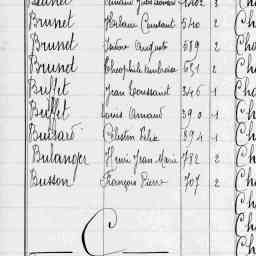 Brunet Hilaire Constant 540 2 Ch
Brunet Isidore Auguste 589 2 Ch
Brunet Théophile Ambroise 651 2 Ch
Buffet Jean Toussaint 346 1 Cha
Buffet Louis Armand 390 1 Ch
Buisard Célestin Félix 394 1 Ch
Bulanger Henri Jean Marie 782 2 Ch
Busson François Pierre 707 2 Ch
C